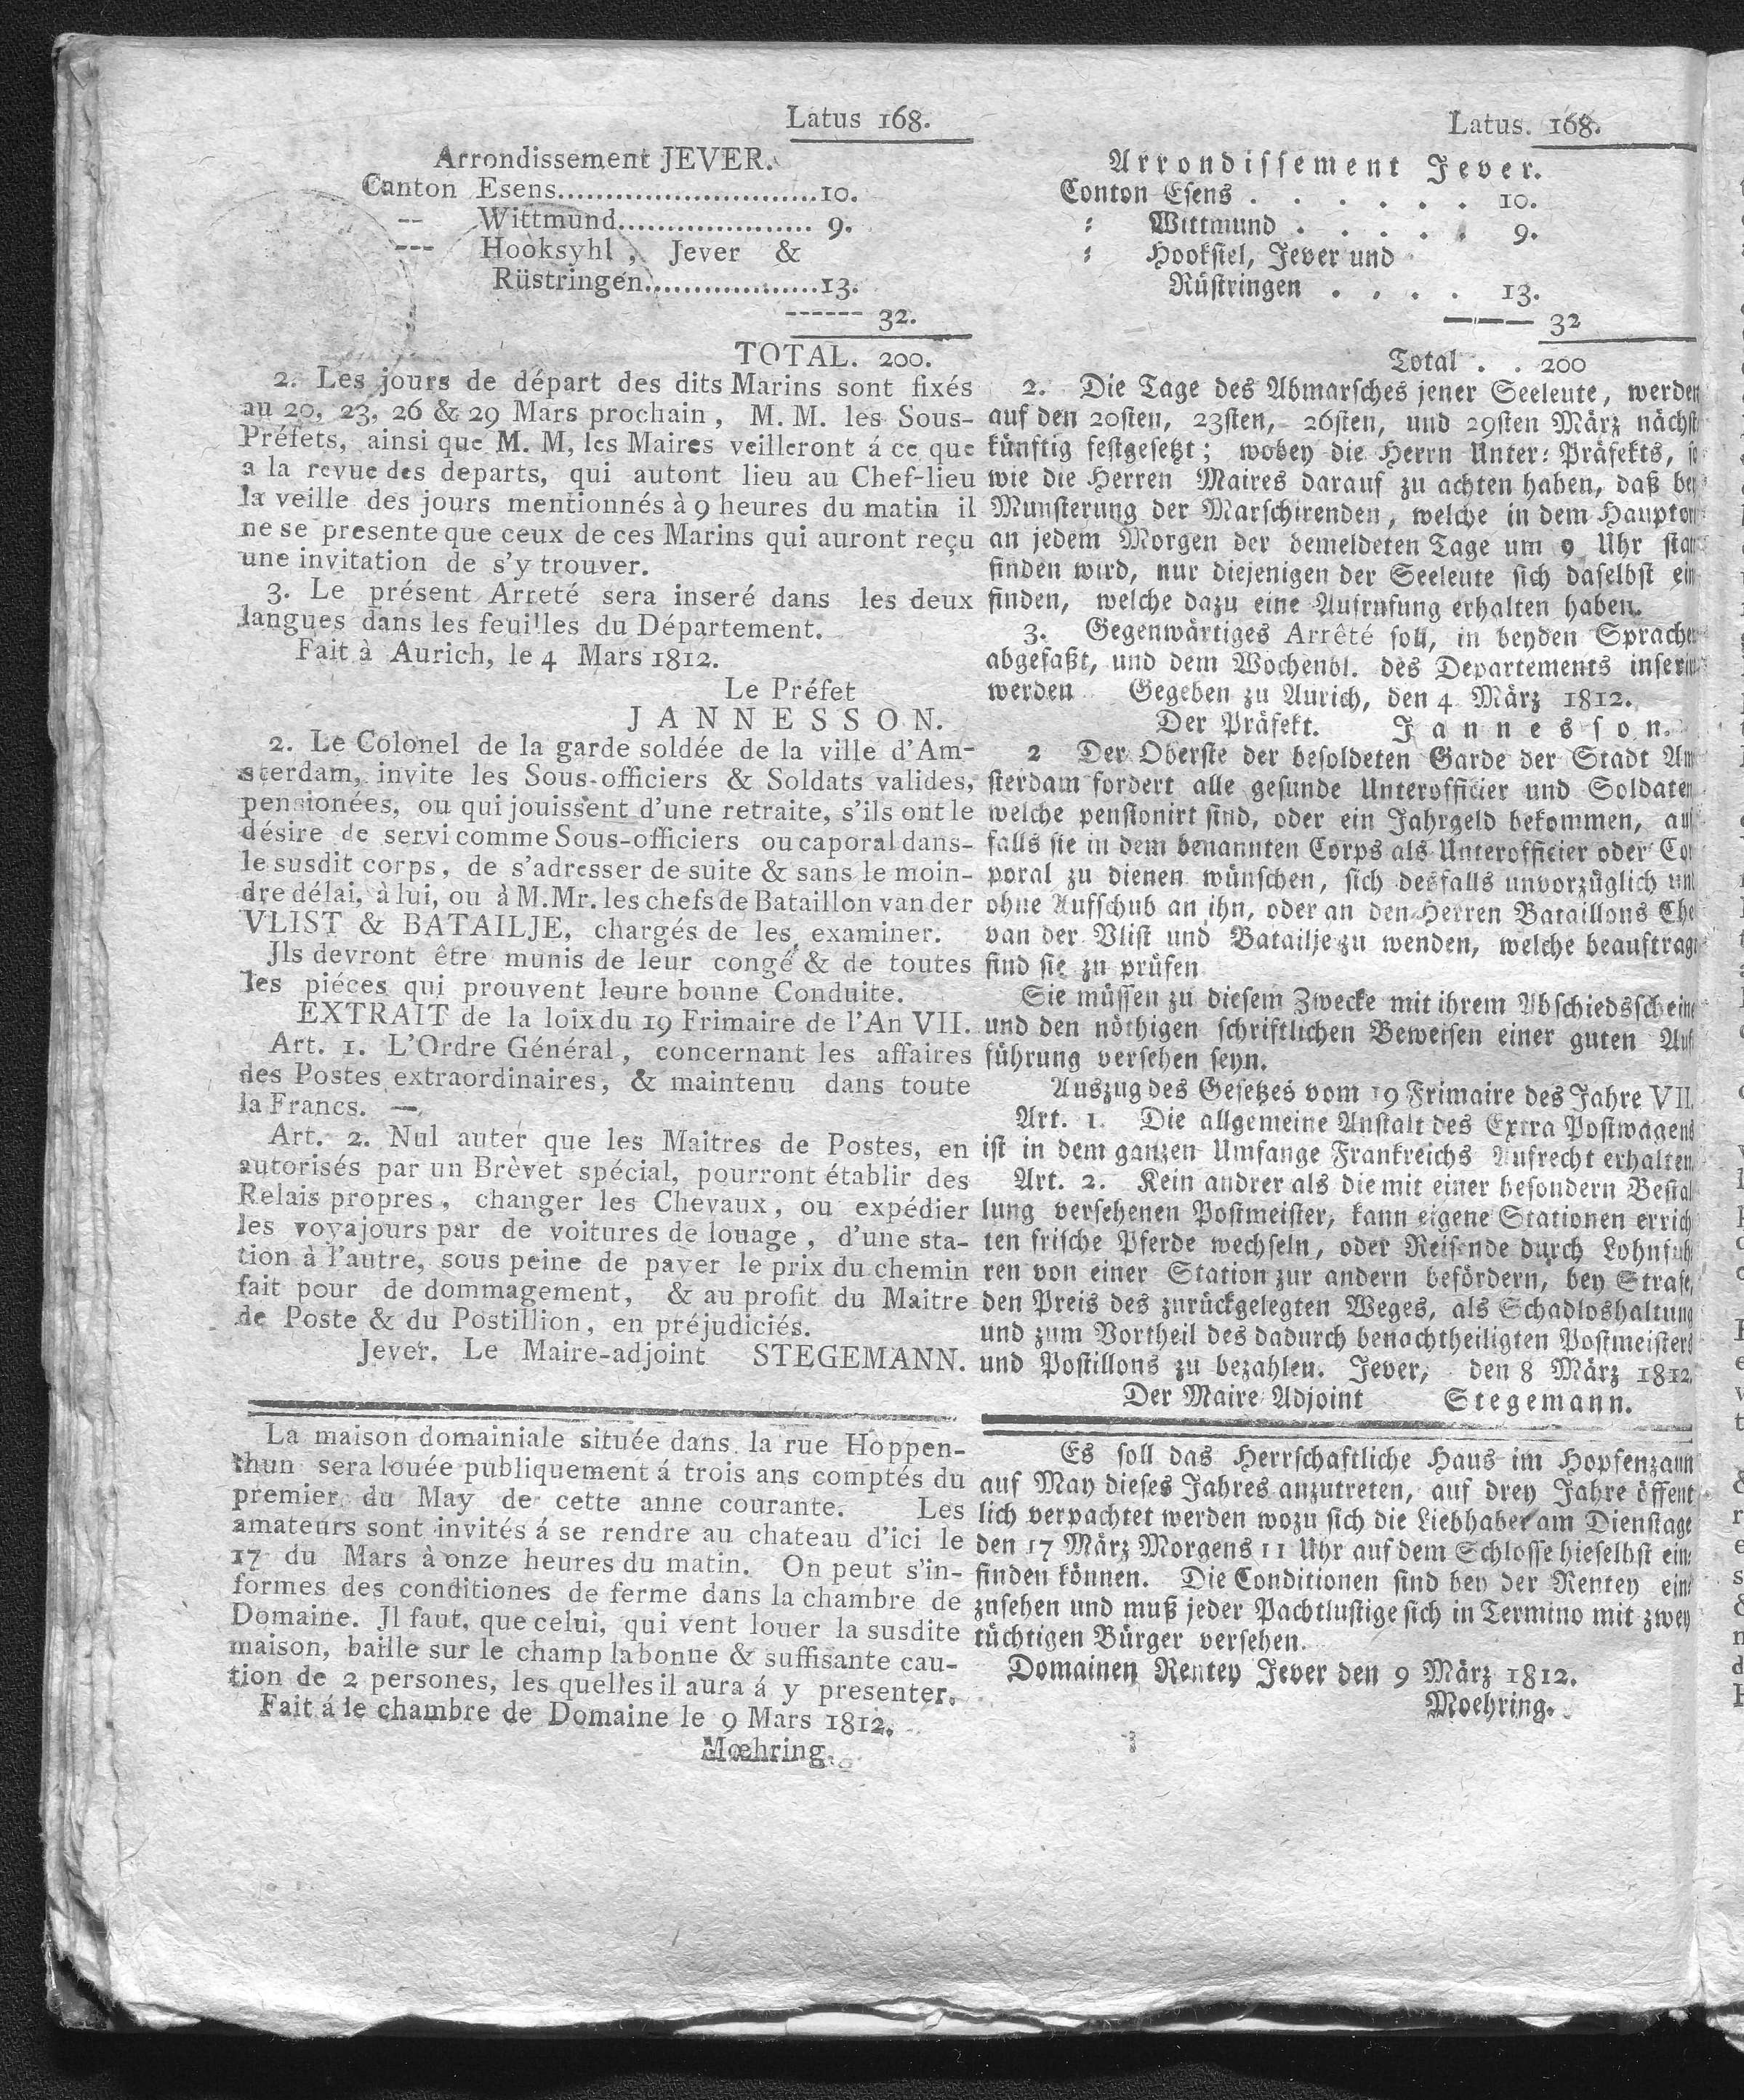 Latus 168.
Arrondissement JEVER.
Canton Esens...........................10.
-- Wittmund.................... 9.
--- Hooksyhl, Jever &
Rüstringen..................13.
------ 32.
TOTAL. 200.
2. Les jours de départ des dits Marins sont fixés
au 20, 23, 26 & 29 Mars prochain, M. M. les Sous-
Préfets, ainsi que M. M, les Maires veilleront á ce que
a la revue des departs, qui autont lieu au Chef-lieu
la veille des jours mentionnés à 9 heures du matin il
ne se presente que ceux de ces Marins qui auront reçu
une invitation de s'y trouver.
3. Le présent Arreté sera inseré dans les deux
langues dans les feuilles du Département.
Fait à Aurich, le 4 Mars 1812.
Le Préfet
JANNESSON.
2. Le Colonel de la garde soldée de la ville d'Am-
sterdam, invite les Sous-officiers & Soldats valides,
pensionées, ou qui jouissent d'une retraite, s'ils ont le
désire de servi comme Sous-officiers ou caporal dans-
le susdit corps, de s'adresser de suite & sans le moin-
dre délai, à lui, ou à M.Mr. les chefs de Bataillon van der
VLIST & BATAILJE, chargés de les examiner.
Jls devront être munis de leur congé & de toutes
les piéces qui prouvent leure bonne Conduite.
EXTRAIT de la loix du 19 Frimaire de l'An VII.
Art. 1. L'Ordre Général, concernant les affaires
des Postes extraordinaires, & maintenu dans toute
la Francs. —
Art. 2. Nul auter que les Maitres de Postes, en
autorisés par un Brèvet spécial, pourront établir des
Relais propres, changer les Chevaux, ou expédier
les voyajours par de voitures de louage, d'une sta-
tion à l'autre, sous peine de payer le prix du chemin
fait pour de dommagement, & au profit du Maitre
de Poste & du Postillion, en préjudiciés.
Jever. Le Maire-adjoint STEGEMANN.
La maison domainiale située dans la rue Hoppen-
thun sera louée publiquement á trois ans comptés du
premier du May de cette anne courante. Les
amateurs sont invités á se rendre au chateau d'ici le
17 du Mars à onze heures du matin. On peut s'in-
formes des conditiones de ferme dans la chambre de
Domaine. Jl faut, que celui, qui vent louer la susdite
maison, baille sur le champ la bonue & suffisante cau-
tion de 2 persones, les quelles il aura á y presenter.
Fait á le chambre de Domaine le 9 Mars 1812.
Mœhring.
Latus. 168.
Arrondissement Jever.
Conton Esens . . . . . . 10.
: Wittmund . . . . . 9.
: Hooksiel, Jever und
Rüstringen . . . . 13.
——— 32
Total . . 200
2. Die Tage des Abmarsches jener Seeleute, werden
auf den 20sten, 23sten, 26sten, und 29sten März nächst
künftig festgesetzt; wobey die Herrn Unter: Präfekts, so
wie die Herren Maires darauf zu achten haben, daß bey
Munsterung der Marschirenden, welche in dem Hauptor
an jedem Morgen der bemeldeten Tage um 9 Uhr stat
finden wird, nur diejenigen der Seeleute sich daselbst ein
finden, welche dazu eine Aufrufung erhalten haben.
3. Gegenwärtiges Arrêté soll, in beyden Sprachen
abgefaßt, und dem Wochenbl. des Departements inserirt
werden Gegeben zu Aurich, den 4 März 1812.
Der Präfekt. Jannesson.
2 Der Oberste der besoldeten Garde der Stadt Am
sterdam fordert alle gesunde Unterofficier und Soldaten
welche pensionirt sind, oder ein Jahrgeld bekommen, auf
falls sie in dem benannten Corps als Unterofficier oder Cor
poral zu dienen wünschen, sich desfalls unvorzüglich und
ohne Aufschub an ihn, oder an den Herren Bataillons Che
van der Vlist und Batailje zu wenden, welche beauftragt
sind sie zu prüfen
Sie müssen zu diesem Zwecke mit ihrem Abschiedsscheine
und den nöthigen schriftlichen Beweisen einer guten Auf
führung versehen seyn.
Auszug des Gesetzes vom 19 Frimaire des Jahre VII.
Art. 1. Die allgemeine Anstalt des Extra Postwagens
ist in dem ganzen Umfange Frankreichs Aufrecht erhalten.
Art. 2. Kein andrer als die mit einer besondern Bestal
lung versehenen Postmeister, kann eigene Stationen errich
ten frische Pferde wechseln, oder Reisende durch Lohnfuh
ren von einer Station zur andern befördern, bey Strafe,
den Preis des zurückgelegten Weges, als Schadloshaltung
und zum Vortheil des dadurch benachtheiligten Postmeisters
und Postillons zu bezahlen. Jever, den 8 März 1812.
Der Maire Adjoint Stegemann.
Es soll das Herrschaftliche Haus im Hopfenzaun
auf May dieses Jahres anzutreten, auf drey Jahre öffent
lich verpachtet werden wozu sich die Liebhaber am Dienstage
den 17 März Morgens 11 Uhr auf dem Schlosse hieselbst ein:
finden können. Die Conditionen sind bey der Rentey ein:
zusehen und muß jeder Pachtlustige sich in Termino mit zwey
tüchtigen Bürger versehen.
Domainen Rentey Jever den 9 März 1812.
Moehring.